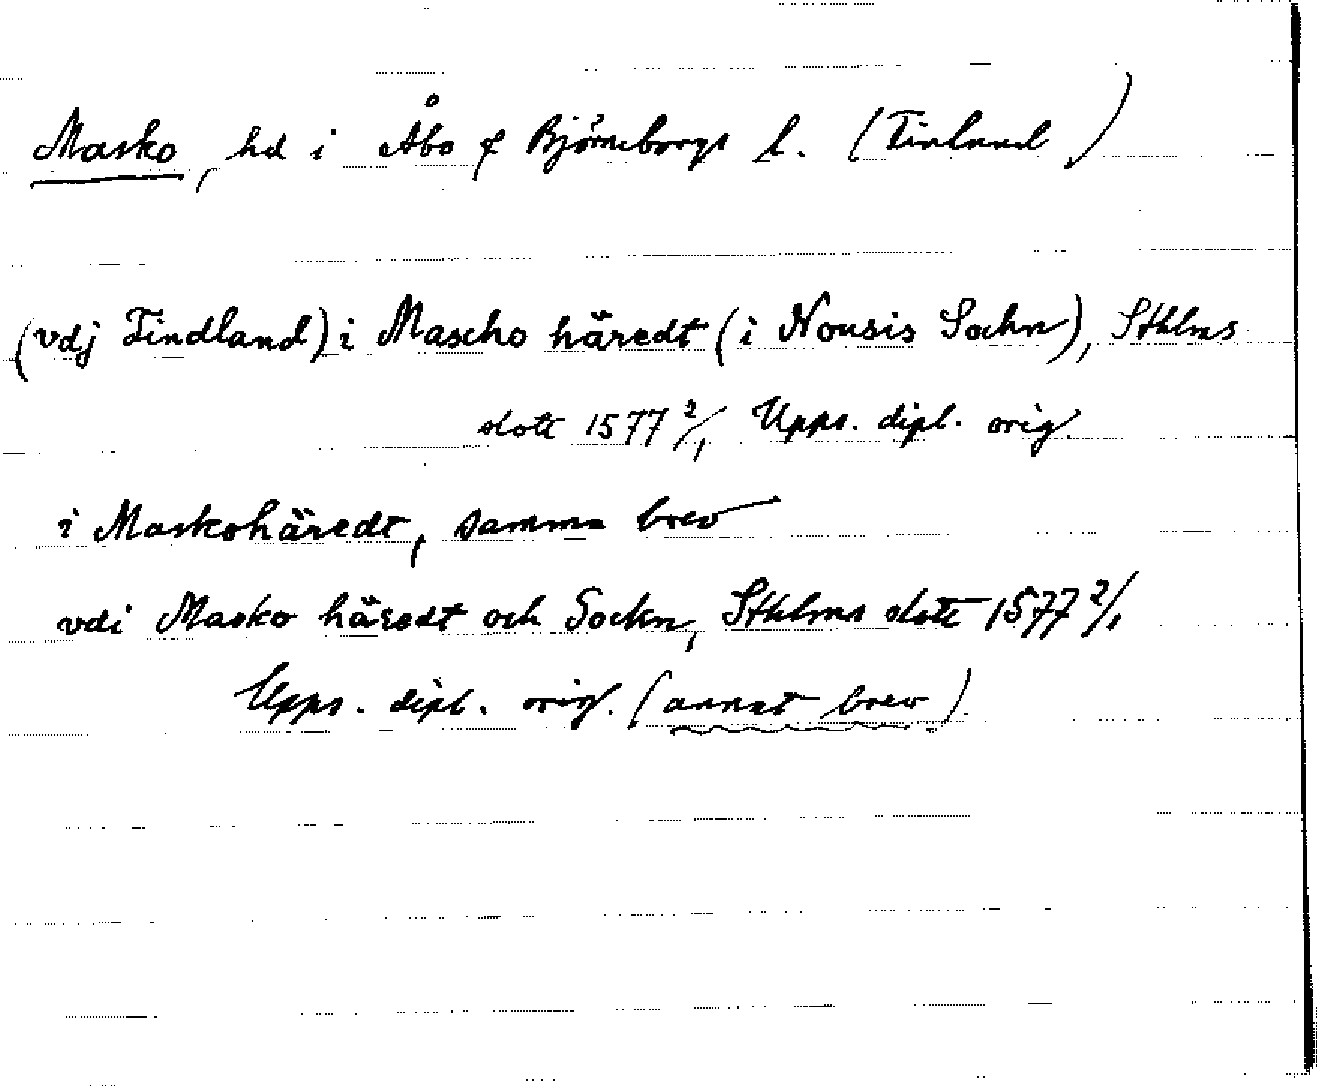 Masko, hd i Åbo o Björneborgs l. (Finland)
(vdj Findland) i Mascho häredt (i Nousis Sochn), Sthlms
slott 1577 2/1, Upps. dipl. orig.
i Maskohäredt, samma brev
vdi Masko häredt och Sockn, Sthlms slott 1577 2/1
Upps. dipl. orig. (annat brev).